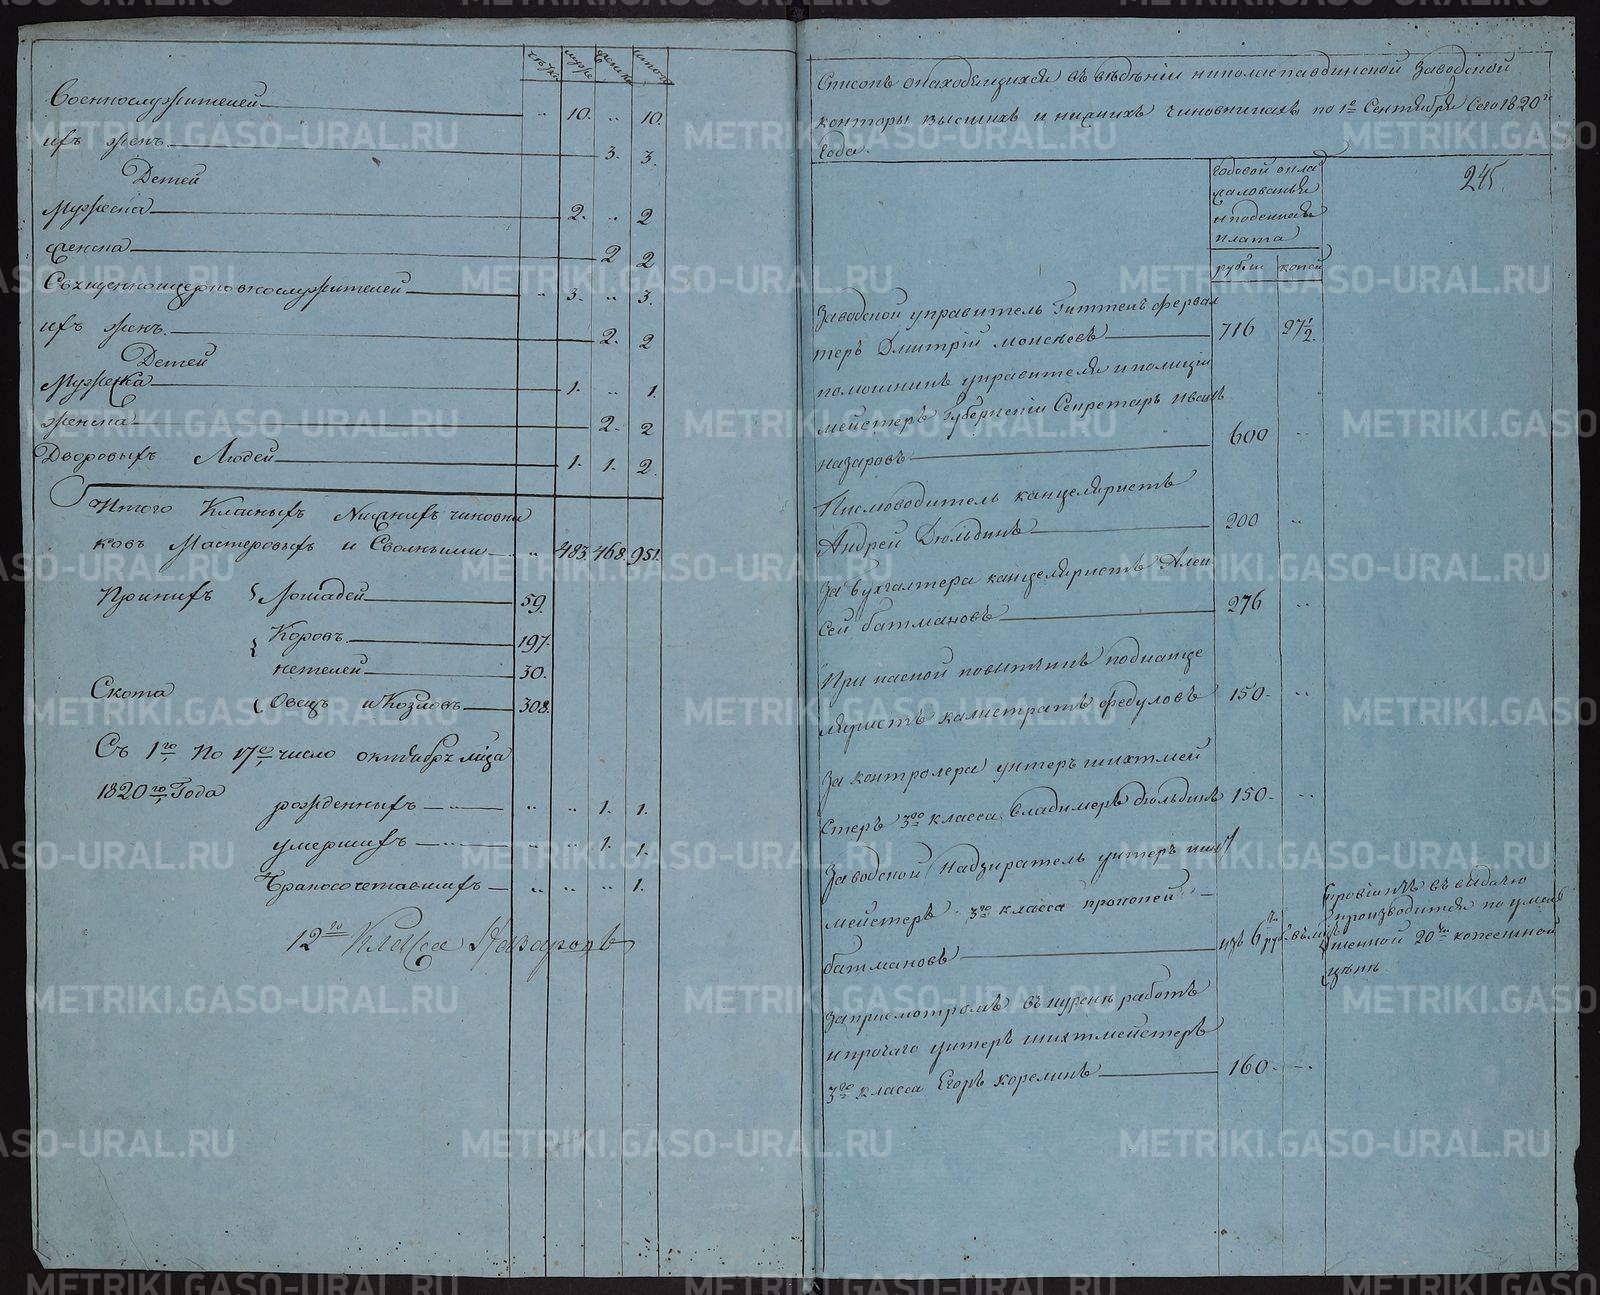 муже
женска
итого
Военнослужителей 10. 10.
ихъ женъ 3. 3.
Детей
Мужеска 2. 2
женска 2 2
Священноицерковнослужителей 3. 3.
ихъ женъ. 2. 2
Детей
Мужеска 1. 1.
женска 2. 2
Дворовыхъ Людей 1. 1. 2.
Итого Класныхъ Нижнихъ чиновни
ковъ Мастеровыхъ и Свольными 483. 468. 951.
Принихъ Лошадей 59.
Коровъ 197.
нетелей 30.
Скота Овецъ и Козловъ 308.
Съ 1го По 17е число октября м̃ца
1820го Года
рожденныхъ 1. 1.
умершихъ 1. 1.
Бракосочетавшихъ 1.
12го Класса Назаровъ
Списокъ онаходящихся въ вѣдѣніи николаепавдинской Заводской
конторы высшихъ и нижнихъ чиновникахъ по 1е Сентября Сего 1820го
Года.
245.
Годовой окла
жалованья
иподенная
плата
рубли копей
Заводской управитель Гиттенъ ферваль
теръ Дмитрій Моисеевъ 716 27 1/2.
помошникъ управителя иполиціи
мейстеръ Губернскіи Секретарь Иванъ
назаровъ 600
Писмоводитель канцеляристъ
Андрей Дюльдинъ 200
За бухгалтера канцеляристъ Алек
сей батмановъ 276
При часной повытчикъ подканце
ляристъ калистратъ федуловъ 150.
За контролера унтеръ шихтмей
стеръ 3го класса Владимеръ дюльдинъ 150.
Заводской Надзиратель унтеръ шихт
мейстеръ 3го класса прокопей
батмановъ изъ 6ти руб. въ мцъ
провіантъ въ выдачю
производится по умень
шенной 20ти копеешной
цѣнѣ
Заприсмотромъ въ курень работъ
ипрочаго унтеръ шихтмейстеръ
3го класса Егоръ корелинъ 160.
METRIKI.GASO-URAL.RU